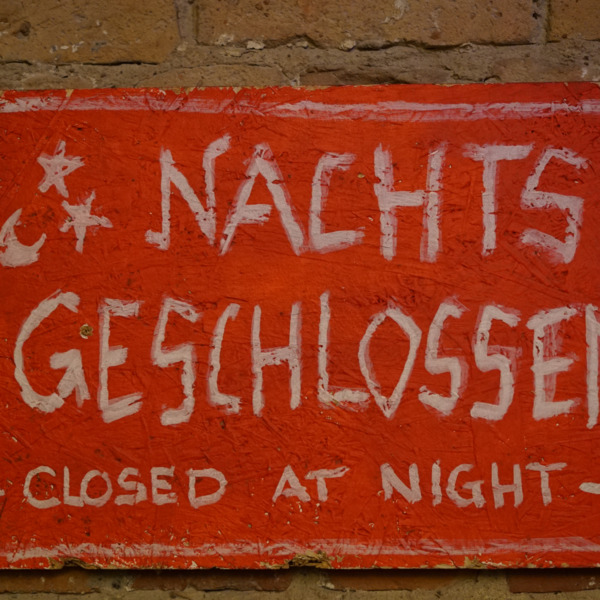 NACHTS
GESCHLOSSEN
- CLOSED AT NIGHT -